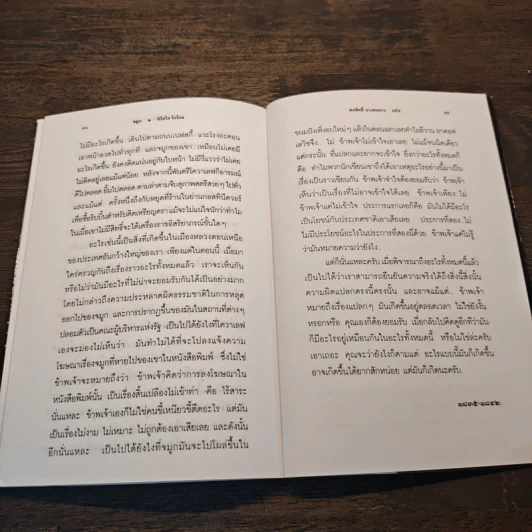 ๘๐ จมูก นิโคไล โกโกล
ไม่มีอะไรเกิดขึ้น เดินไปตามถนนเนฟสกี้ แวะโรงละคอน
เอาหน้าอวดไปทั่วทุกที่ และจมูกของเขา เหมือนไม่เคยมี
อะไรเกิดขึ้น ยังคงติดแน่นอยู่กับใบหน้า ไม่มีวี่แววว่าไม่เคย
ไม่ติดอยู่เลยแม้แต่น้อย หลังจากนี้พันตรีโควาเลฟก็อารมณ์
ดีไปตลอด ยิ้มไปตลอด ตามล่าตามจีบสุภาพสตรีสวยๆ ไปทั่ว
และแม้แต่ ครั้งหนึ่งถึงกับหยุดที่ร้านในย่านกอสตินีดวอร์
เพื่อซื้อริบบิ้นสำหรับติดเหรียญตรา แม้จะไม่แน่ใจนักว่าทำไม
ในเมื่อเขาไม่มีสิทธิ์จะได้เครื่องราชอิสริยาภรณ์ชั้นใดๆ
อะไรเช่นนี้เป็นสิ่งที่เกิดขึ้นในเมืองหลวงตอนเหนือ
ของประเทศอันกว้างใหญ่ของเรา เพียงแต่ในตอนนี้ เมื่อมา
ใคร่ครวญกันถึงเรื่องราวอะไรทั้งหมดแล้ว เราจะเห็นกัน
หรือไม่ว่ามันมีอะไรที่ไม่น่าจะยอมรับกันได้เป็นอย่างมาก
โดยไม่กล่าวถึงความประหลาดผิดธรรมชาติในการหลุด
ออกไปของจมูก และการปรากฏขึ้นของมันในสถานที่ต่างๆ
ปลอมตัวเป็นคณะผู้บริหารแห่งรัฐ -เป็นไปได้ยังไงที่โควาเลฟ
เองจะมองไม่เห็นว่า มันทำไม่ได้ที่จะไปลงแจ้งความ
โฆษณาเรื่องจมูกที่หายไปของเขาในหนังสือพิมพ์ ซึ่งไม่ใช่
ข้าพเจ้าจะหมายถึงว่า ข้าพเจ้าคิดว่าการลงโฆษณาใน
หนังสือพิมพ์นั้น เป็นเรื่องสิ้นเปลืองไม่เข้าท่า -คือ ไร้สาระ
นั่นแหละ ข้าพเจ้าเองก็ไม่ใช่คนขี้เหนียวขี้ตืดอะไร แต่มัน
เป็นเรื่องไม่งาม ไม่เหมาะ ไม่ถูกต้องเอาเสียเลย และดังนั้น
อีกนั่นแหละ เป็นไปได้ยังไงที่จมูกมันจะไปโผล่ขึ้นใน
ดลสิทธิ์ บางคมบาง แปล ๘๑
ขนมปังเพิ่งอบใหม่ๆ แล้วในตอนแรกเลยทำไมอีวาน ยาคอฟ
เลวิชจึง.. ไม่ ข้าพเจ้าไม่เข้าใจเอาเลย ไม่แม้จนนิดเดียว
แต่กระนั้น ที่แปลกและยากจะเข้าใจ ยิ่งกว่าอะไรทั้งหมดก็
คือ ทำไมพวกนักเขียนเลือกเรื่องอะไรพรรค์นี้มาเขียนเป็น
เรื่องเป็นราวเขียนกัน ข้าพเจ้าจำใจต้องยอมรับว่า ข้าพเจ้า
เห็นว่าเป็นเรื่องที่ไม่อาจเข้าใจได้เลย ข้าพเจ้าเพียง..ไม่
ข้าพเจ้าแค่ไม่เข้าใจ ประการแรกเลยก็คือ มันไม่ได้มีอะไร
เป็นโยชน์กับประเทศชาติเอาเสียเลย ประการที่สอง..ไม่
ไม่มีประโยชน์อะไรในประการที่สองนี้ด้วย ข้าพเจ้าแค่ไม่รู้
ว่ามันหมายความว่ายังไง..
แต่ก็นั่นแหละครับ เมื่อพิจารณาถึงอะไรทั้งหมดนี้แล้ว
เป็นไปได้ว่าเราสามารถยืนยันความจริงได้ถึงสิ่งนี้สิ่งนั้น
ความผิดแปลกตรงนี้ตรงนั้น และอาจแม้แต่.. ข้าพเจ้า
หมายถึงเรื่องแปลกๆ มันเกิดขึ้นอยู่ตลอดเวลา ไม่ใช่ยังงั้น
หรอกหรือ คุณเองก็ต้องยอมรับ เมื่อกลับไปคิดดูอีกทีว่ามัน
ก็มีอะไรอยู่เหมือนกันในอะไรทั้งหมดนี้ หรือไม่ใช่ละครับ
เอาเถอะ คุณจะว่ายังไงก็ตามแต่ อะไรแบบนี้มันก็เกิดขึ้น
อาจเกิดขึ้นได้ยากสักหน่อย แต่มันก็เกิดนะครับ.
๑๘๓๕-๑๘๔๒